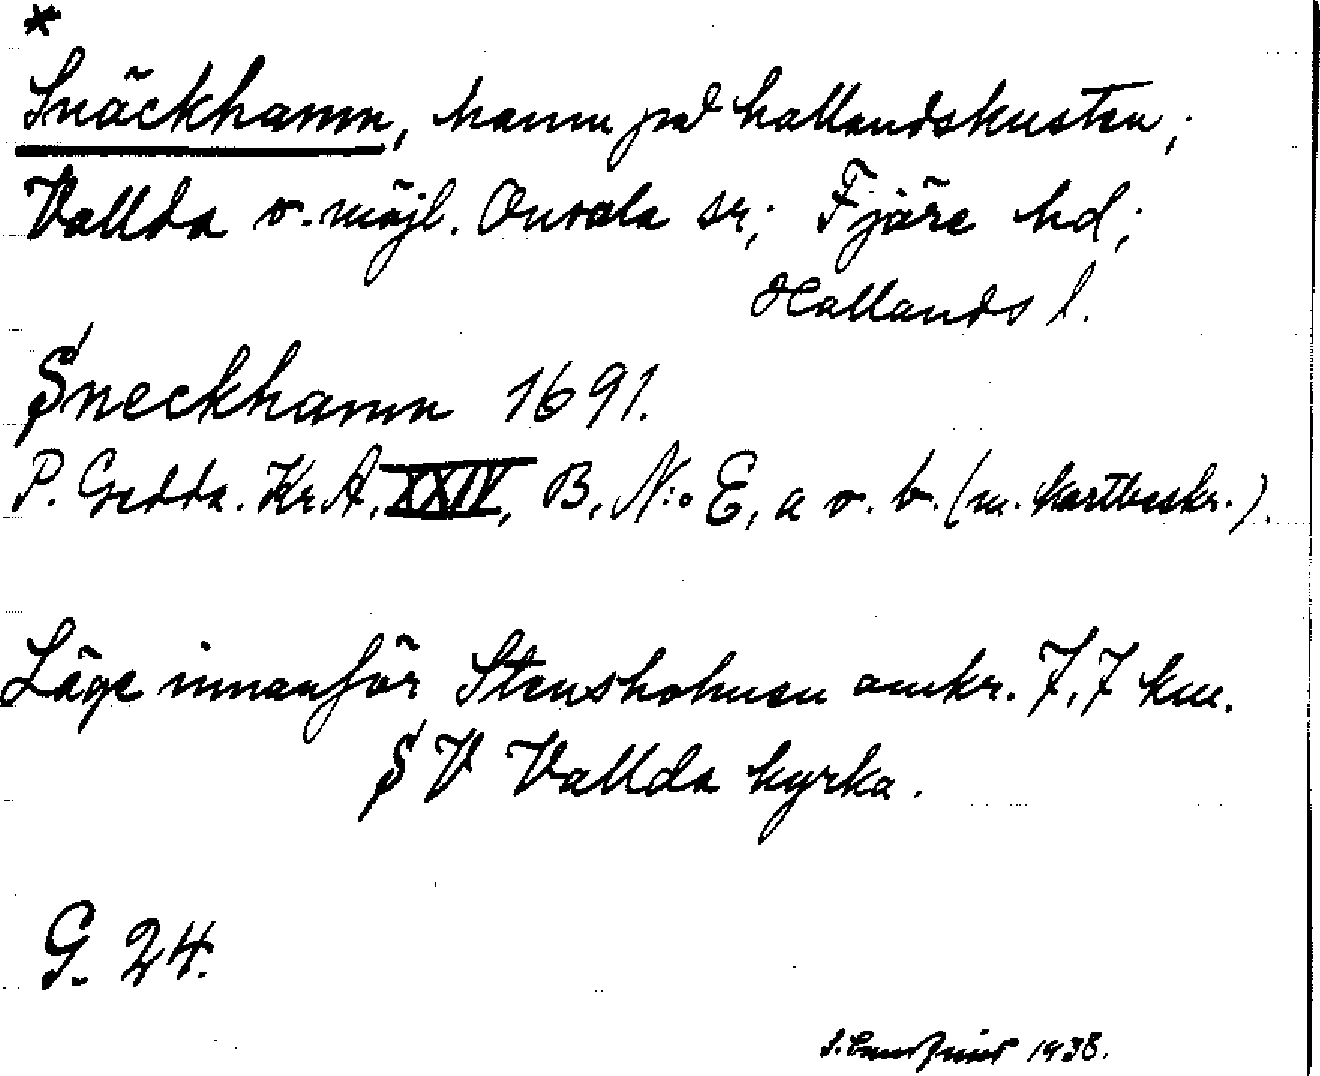 *
Snäckhamn, hamn på hallandskusten;
Vallda o. möjl. Onsala sr; Fjäre hd;
Hallands l.
Sneckhamn 1691.
P. Gedda. Kr. A. XXIV, B, N:o E, a o. b. (m. kartbeskr.).
Läge innanför Stensholmen omkr. 7,7 km.
SV Vallda kyrka.
G. 24.
1938.